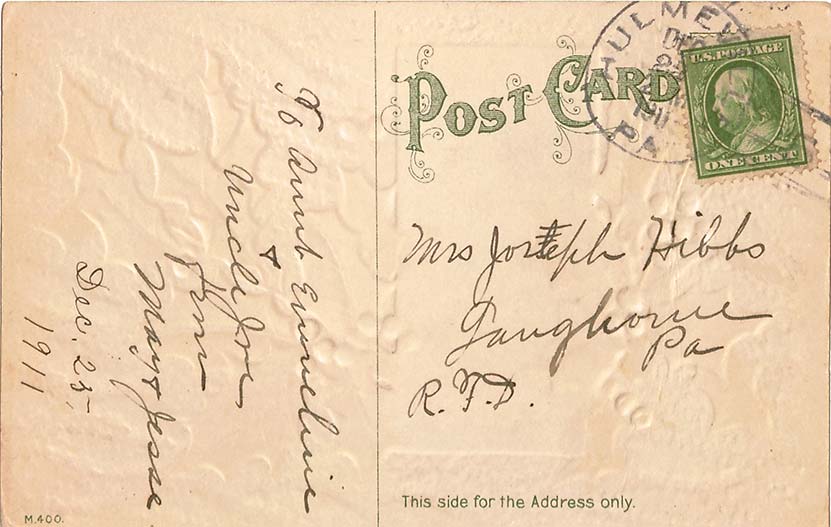 To Aunt Emeline
&
Uncle Joe,
from
May & Jesse
Dec. 25,
1911
M.400.
POST CARD
HULMEVILLE
DEC
1911
PA
U.S. POSTAGE
ONE CENT
Mrs Joseph Hibbs
Langhorne
Pa
R.F.D.
This side for the Address only.